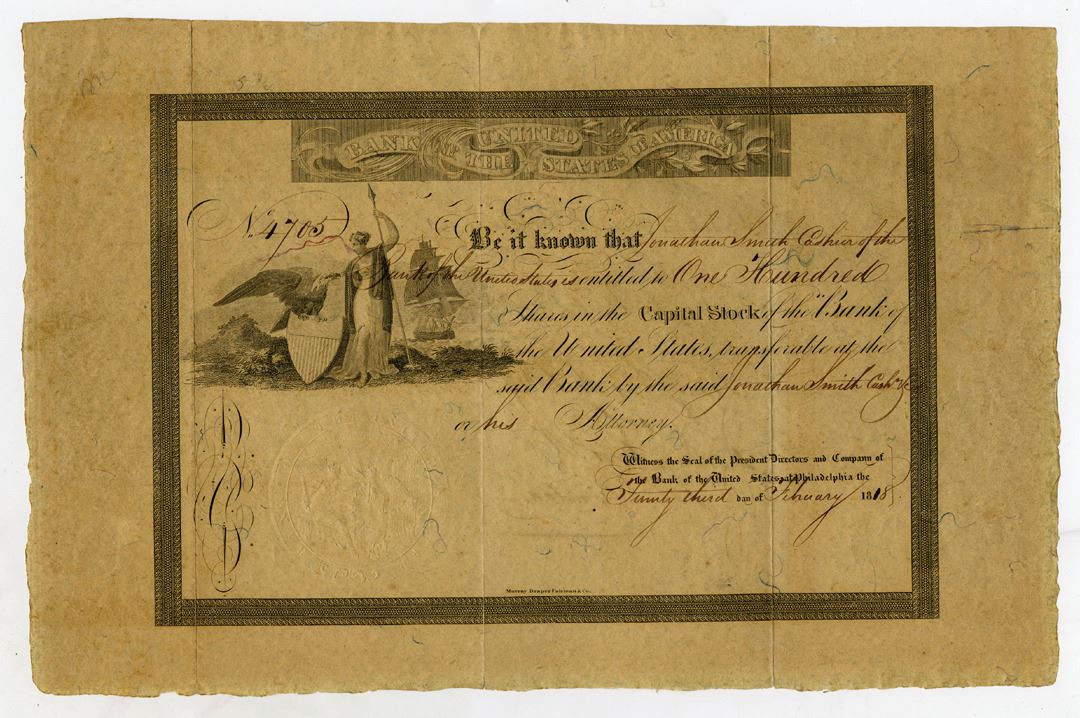 BANK OF THE UNITED STATES OF AMERICA
No. 4705
Be it known that Jonathan Smith Cashier of the
Bank of the United States is entitled to One Hundred
Shares in the Capital Stock of the Bank of
the United States, transferable at the
said Bank by the said Jonathan Smith Cashr &c
or his Attorney.
Witness the Seal of the President Directors and Company of
the Bank of the United States, at Philadelphia the
Twenty third day of February 1818
Murray Draper Fairman & Co.